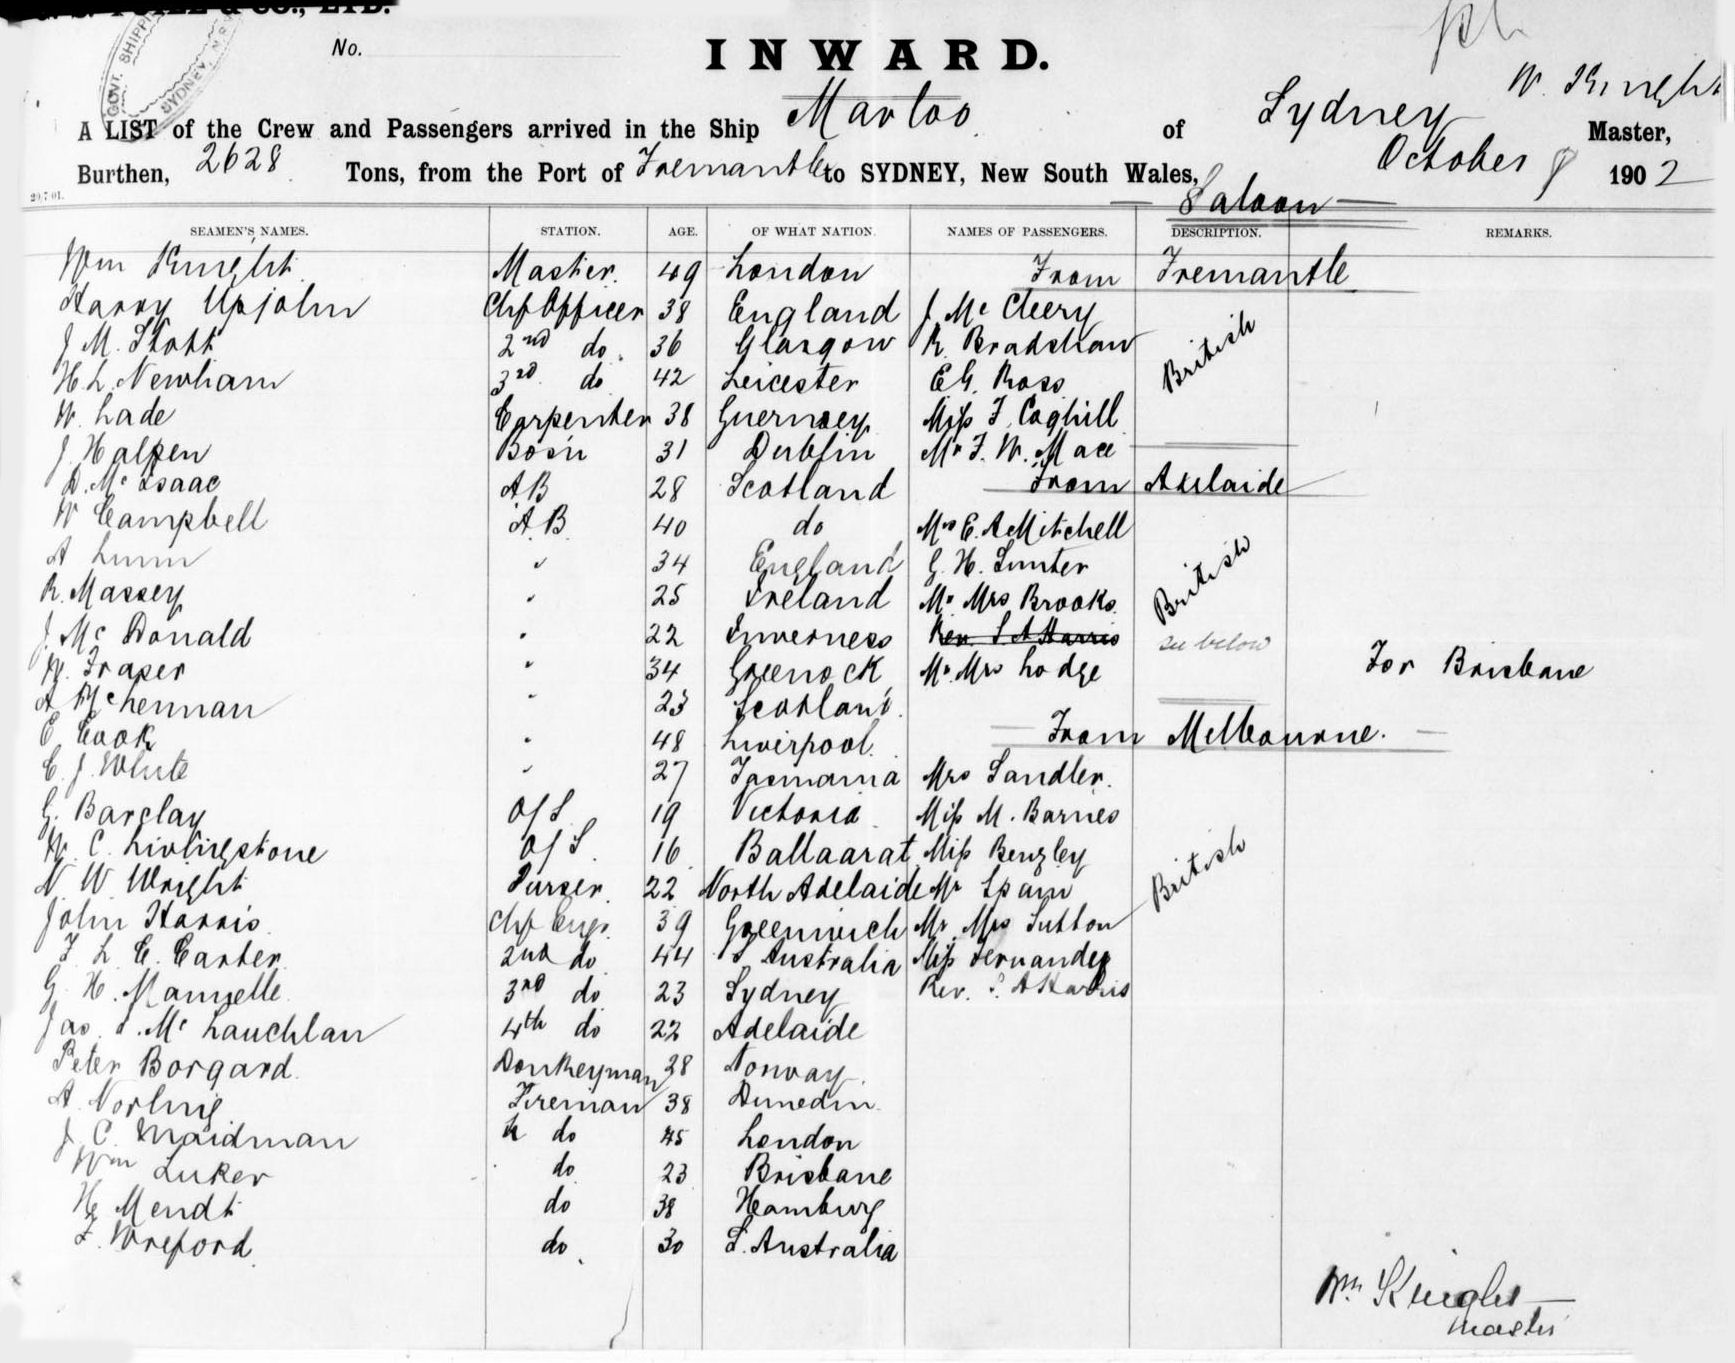 & CO., LTD.
GOVT. SHIPPI
SYDNEY, N.S.W
No.
INWARD.
W. Knight
A LIST of the Crew and Passengers arrived in the Ship Marloo of Sydney Master,
Burthen, 2628 Tons, from the Port of Fremantle to SYDNEY, New South Wales, October 8 1902
29.7.01.
Saloon
SEAMEN'S NAMES. STATION. AGE. OF WHAT NATION. NAMES OF PASSENGERS. DESCRIPTION. REMARKS.
Wm Knight Master. 49 London From Fremantle
Harry Upjohn Chf Officer 38 England J. Mc Cleery
J M. Stott 2nd do. 36 Glasgow R. Bradshaw British
H L. Newham 3rd do 42 Leicester E G. Ross
W. Lade Carpenter 38 Guernsey Miss F. Coghill
J. Halpen Bosn 31 Dublin Mr F. W. Mace
D. Mc Isaac AB 28 Scotland From Adelaide
W Campbell AB 40 do Mrs E. A Mitchell
A Lunn " 34 England G. H. Sunter
R. Massey " 25 Ireland Mr Mrs Brooks British
J. Mc Donald " 22 Inverness Rev. S A Harris see below
W. Fraser " 34 Greenock Mr. Mrs Lodge For Brisbane
A McLennan " 23 Scotland
E Cook " 48 Liverpool. From Melbourne.
C. J. White " 27 Tasmania Mrs Sandler.
G. Barclay O/S 19 Victoria Miss M. Barnes
W. C. Livingstone O/S. 16 Ballaarat Miss Benzley
N W Wright Purser. 22 North Adelaide Mr Spain British
John Harris Chf Engr. 39 Greenwich Mr. Mrs Sutton
F L C. Carter 2nd do 44 S Australia Miss Fernandez
G H. Manzelle 3rd do 23 Sydney Rev. S. A Harris
Jas. Mc Lauchlan 4th do 22 Adelaide
Peter Borgard. Donkeyman 28 Norway.
A. Norling Fireman 38 Dunedin.
J C. Maidman do 45 London
Wm Luker do 23 Brisbane
H. Mendt do 38 Hamburg
F. Wreford do. 30 S. Australia
Wm Knight
Master